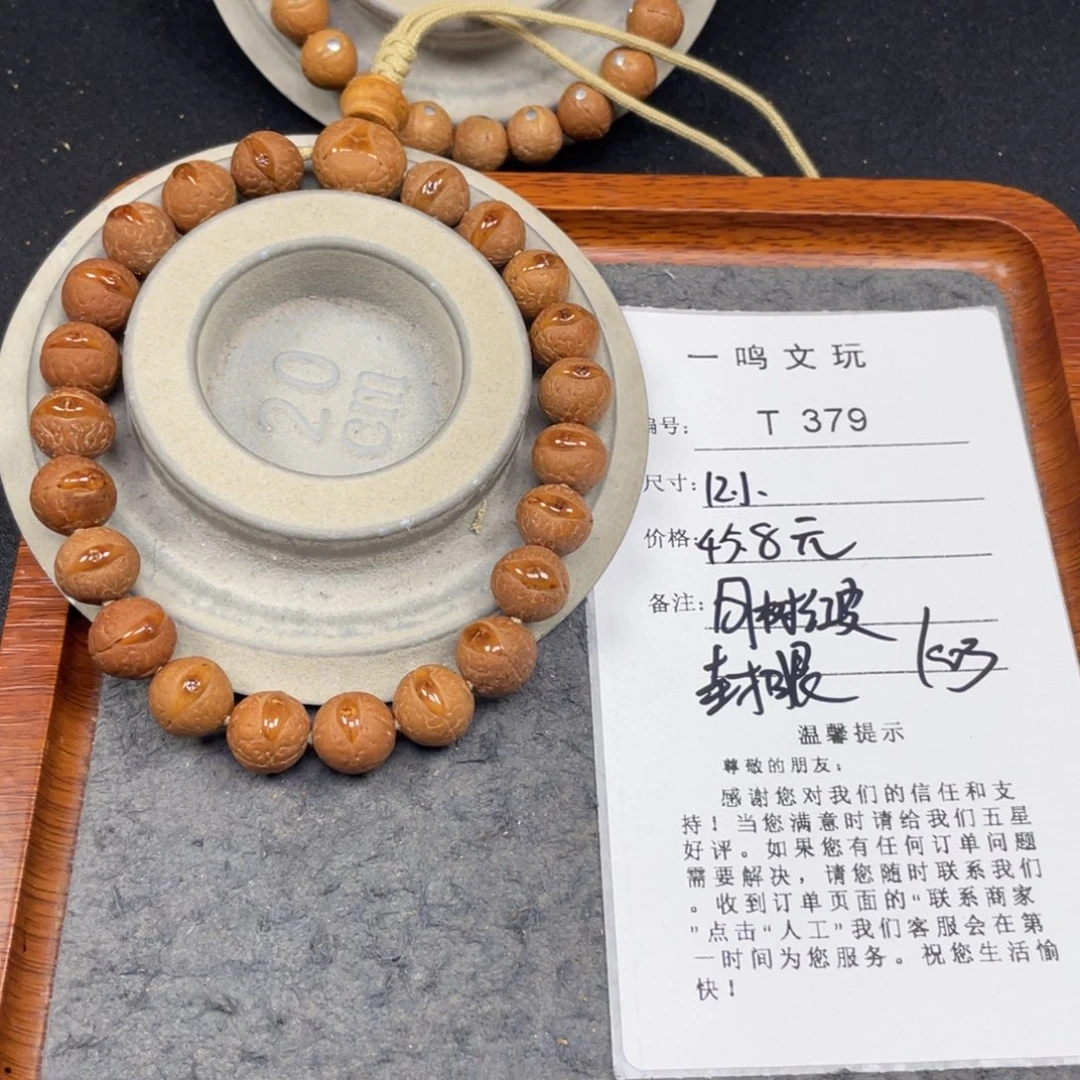 20
cm
一鸣文玩
编号: T 379
尺寸: 12.1.
价格: 458元
备注: 月树红皮
封眼
温馨提示
尊敬的朋友:
感谢您对我们的信任和支
持!当您满意时请给我们五星
好评。如果您有任何订单问题
需要解决,请您随时联系我们
。收到订单页面的“联系商家
”点击“人工”我们客服会在第
一时间为您服务。祝您生活愉
快!